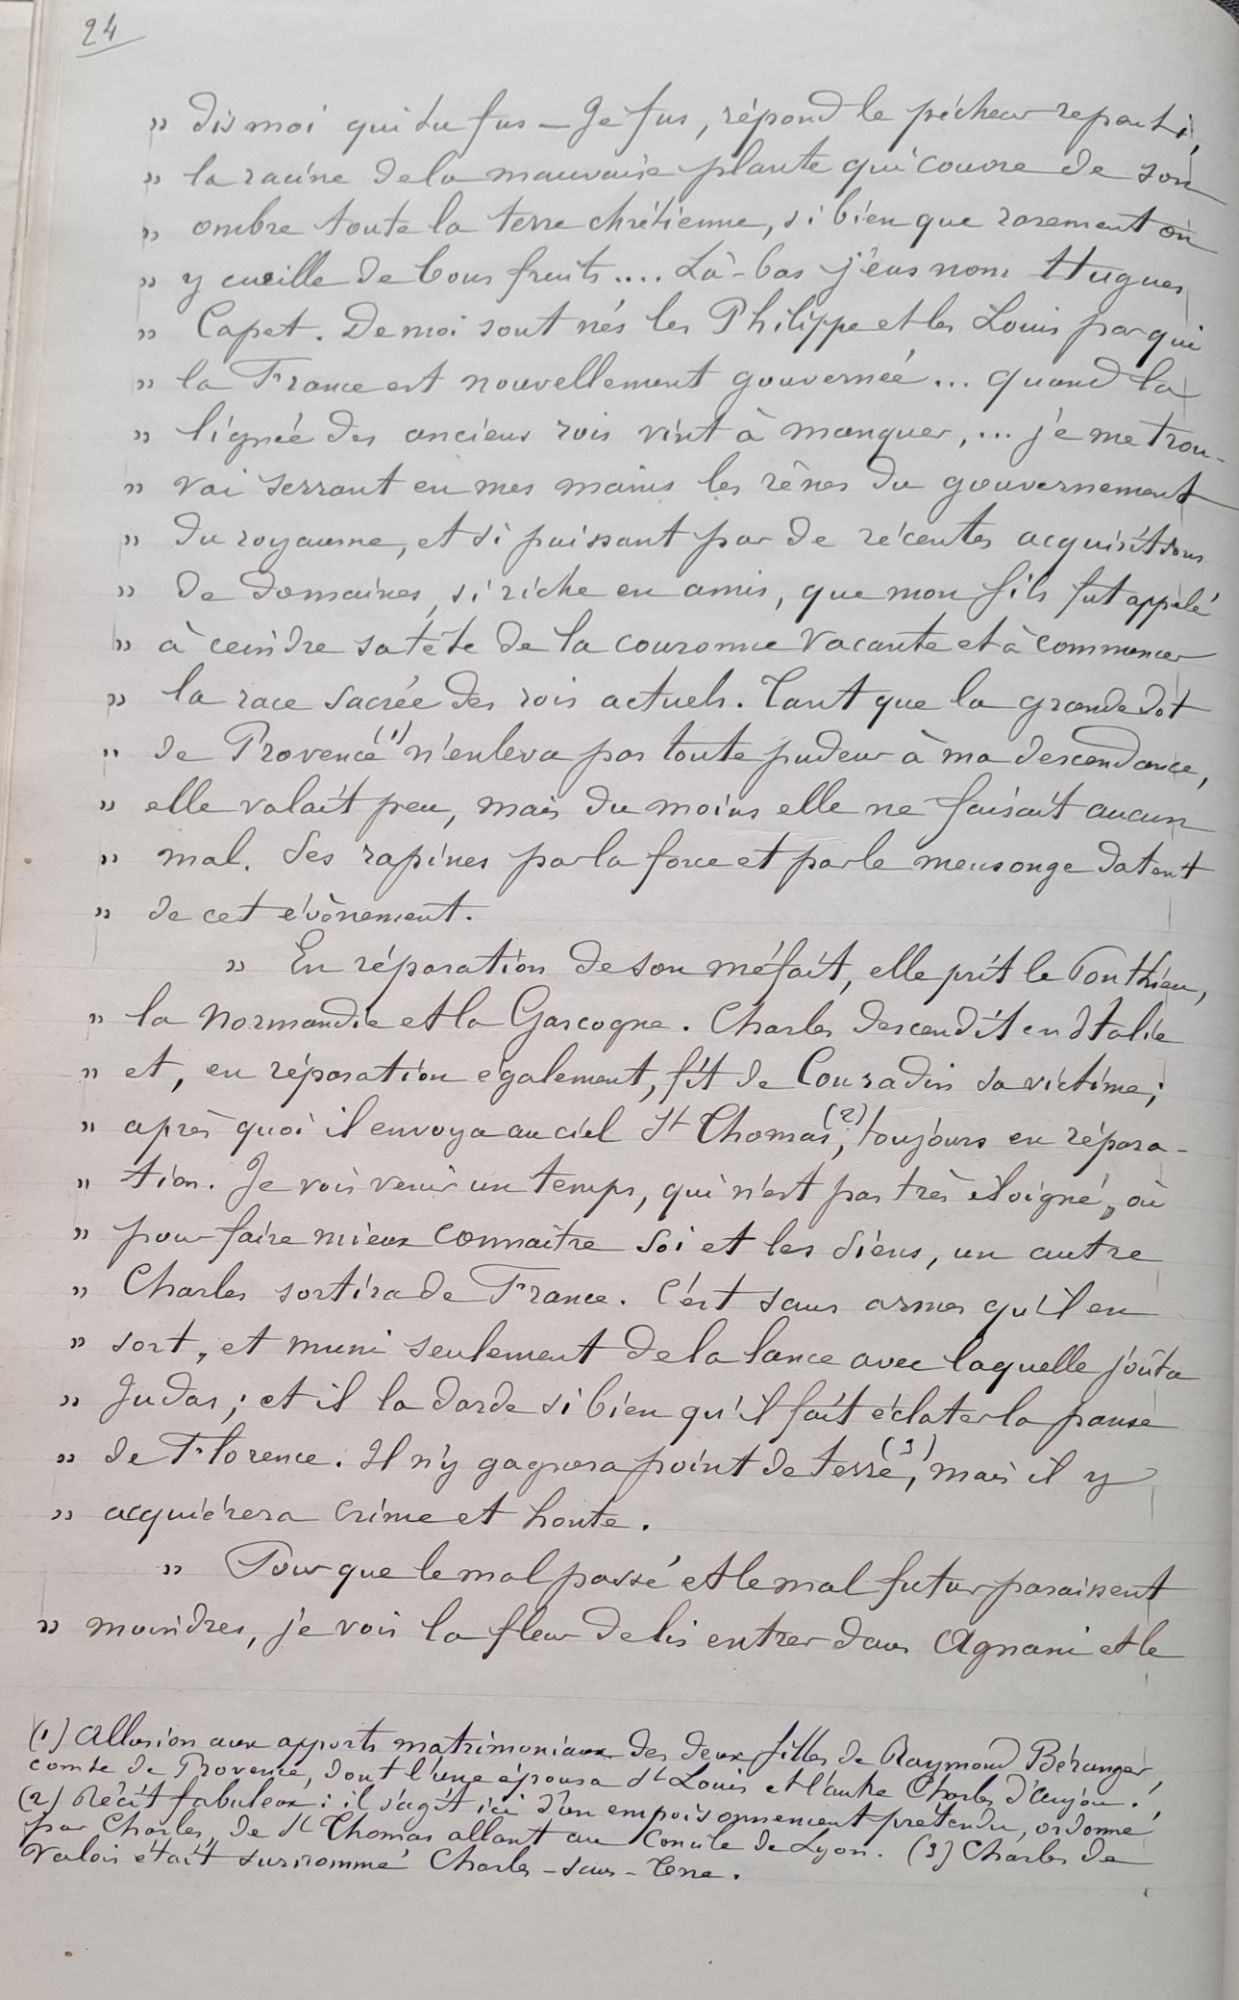 24
" dis moi qui tu fus — Je fus, répond le pécheur repenti,
" la racine de la mauvaise plante qui couvre de son
" ombre toute la terre chrétienne, si bien que rarement on
" y cueille de bons fruits.... Là-bas j'eus nom Hugues
" Capet. De moi sont nés les Philippe et les Louis par qui
" la France est nouvellement gouvernée... quand la
" lignée des anciens rois vint à manquer,... je me trou-
" vai serrant en mes mains les rênes du gouvernement
" du royaume, et si puissant par de récentes acquisitions
" de domaines, si riche en amis, que mon fils fut appelé
" à ceindre sa tête de la couronne vacante et à commencer
" la race sacrée des rois actuels. Tant que la grande dot
" de Provence (1) n'enleva pas toute pudeur à ma descendance,
" elle valait peu, mais du moins elle ne faisait aucun
" mal. Ses rapines par la force et par le mensonge datent
" de cet évènement.
" En réparation de son méfait, elle prit le Ponthieu,
" la Normandie et la Gascogne. Charles descendit en Italie
" et, en réparation également, fit de Couradin sa victime;
" après quoi il envoya au ciel St Thomas (2), toujours en répara-
" tion. Je vois venir un temps, qui n'est pas très éloigné, où
" pour faire mieux connaître soi et les siens, un autre
" Charles sortira de France. C'est sans armes qu'il en
" sort, et muni seulement de la lance avec laquelle joûta
" Judas; et il la darde si bien qu'il fait éclater la panse
" de Florence. Il n'y gagnera point de terre (3), mais il y
" acquièrera crime et honte.
" Pour que le mal passé et le mal futur paraissent
" moindres, je vois la fleur de lis entrer dans Agnani et le
(1) Allusion aux apports matrimoniaux des deux filles de Raymond Béranger,
comte de Provence, dont l'une épousa St Louis et l'autre Charles d'anjou.
(2) Récit fabuleux: il s'agit ici d'un empoisonnement prétendu, ordonné
par Charles, de St Thomas allant au Concile de Lyon. (3) Charles de
Valois était surnommé Charles-sans-Terre.